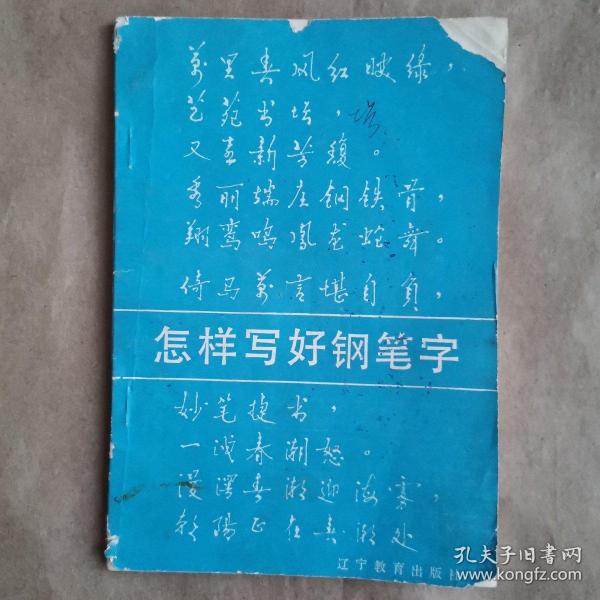 萬里春风红映绿，
艺苑书坛，
坛
又是新芳馥。
秀丽端庄钢铁骨，
翔鸾鸣凤龙蛇舞。
倚马萬言堪自負，
怎样写好钢笔字
妙笔捷书，
一派春潮怒。
漫潭春潮迎海雾，
朝陽正在春潮处
辽宁教育出版社
孔夫子旧书网
www.kongfz.com